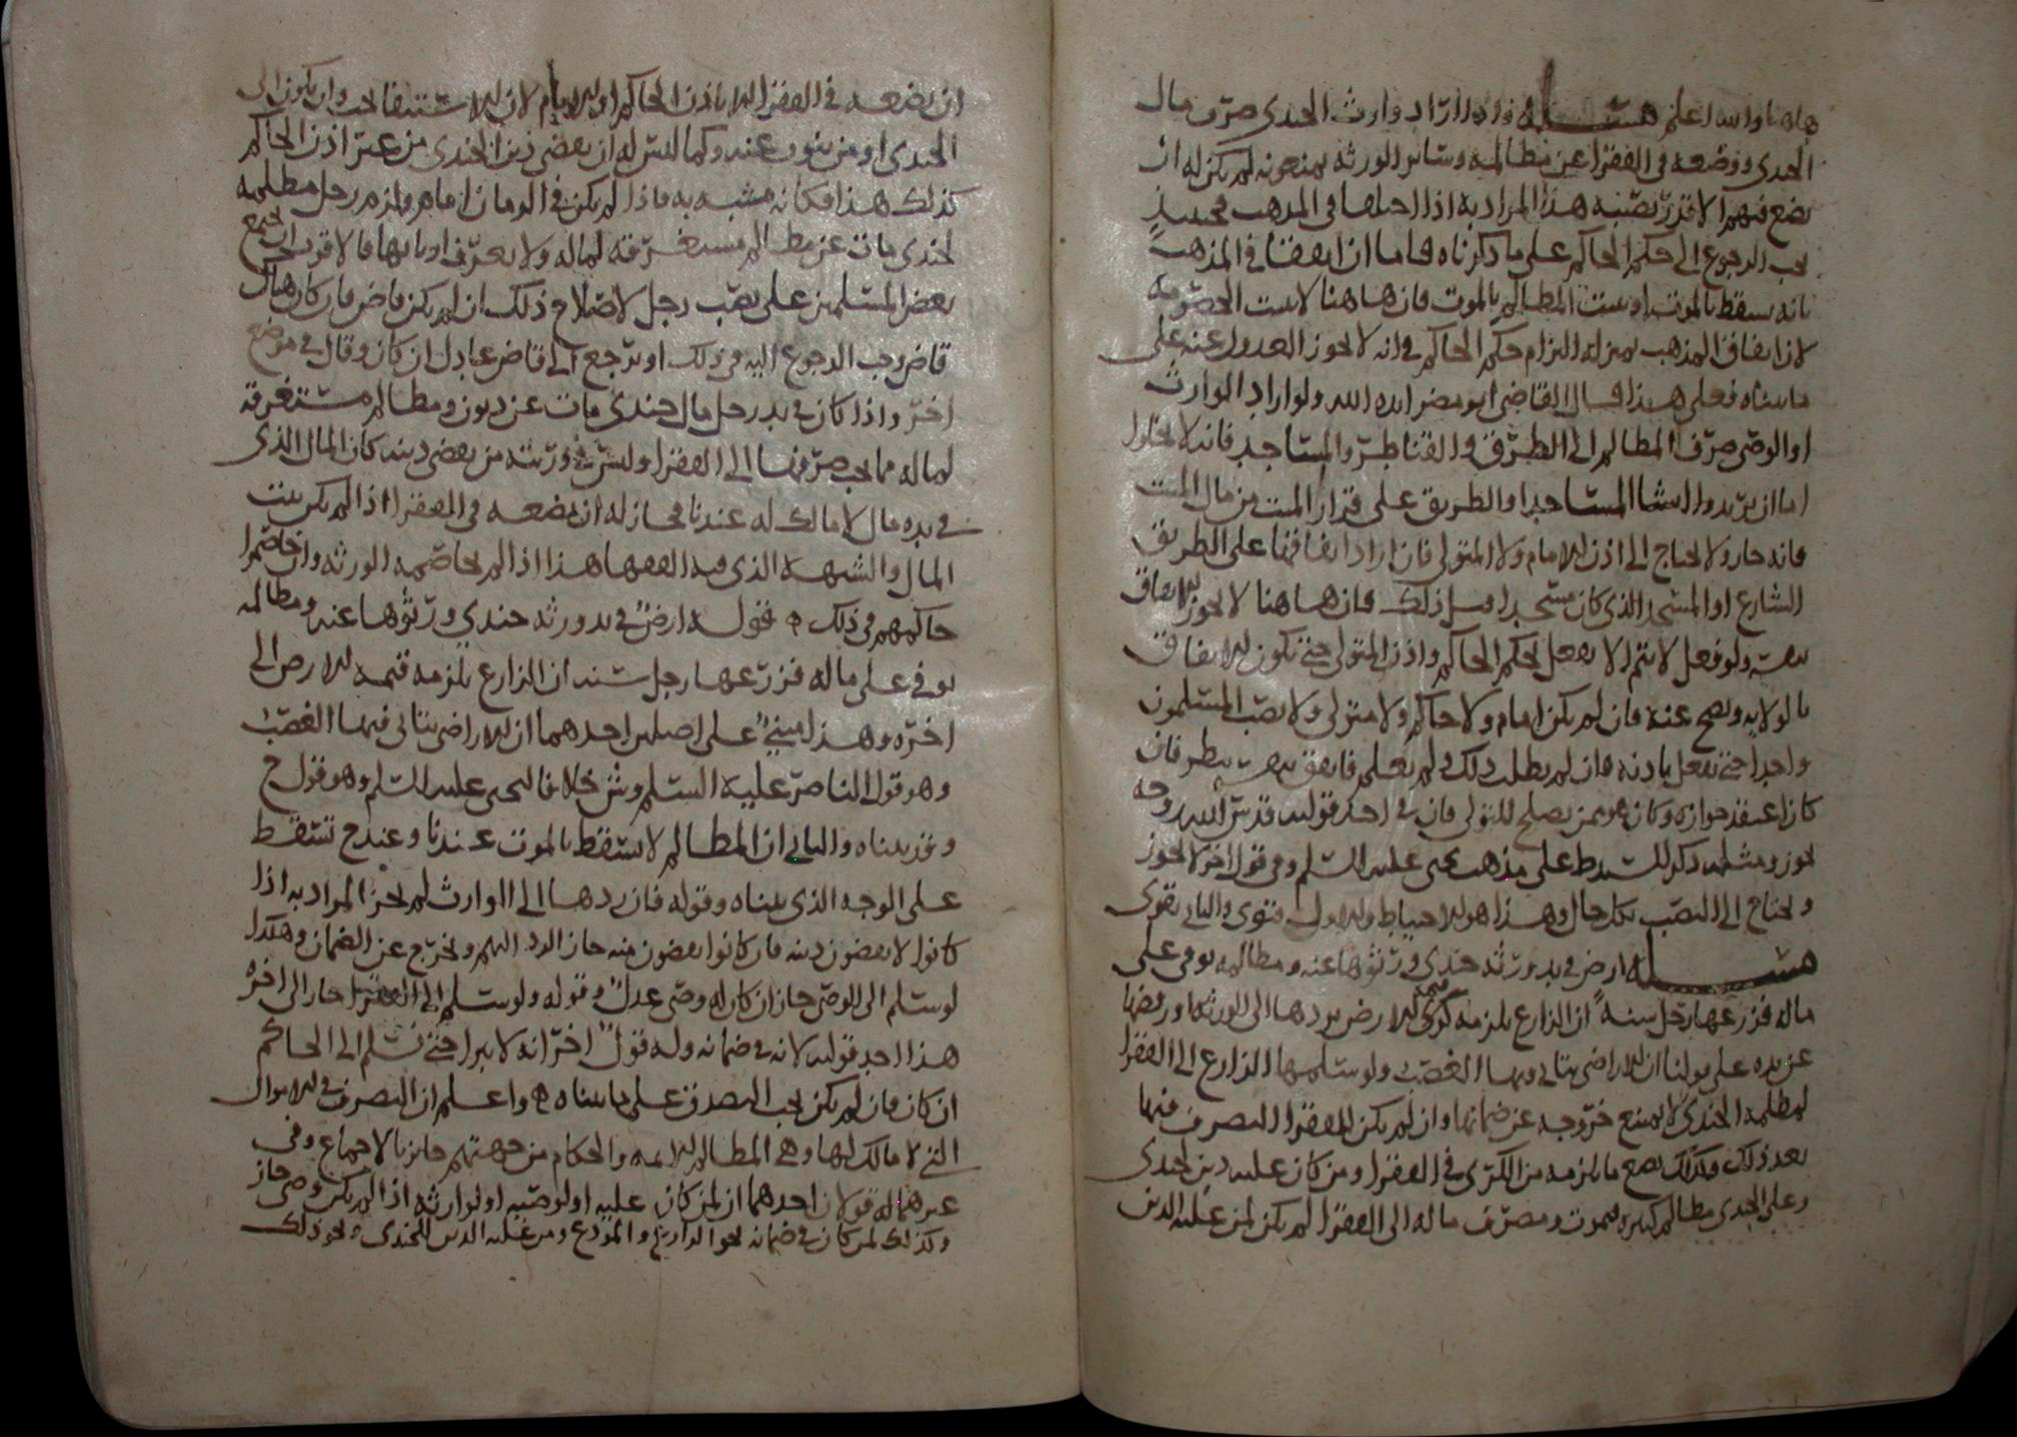 هاهنا والله اعلم مسئلة واذا اراد وارث الجندي صرف مال
الجندي ووضعه في الفقرا عن مظالمه وسائر الورثه يمنعونه لم يكن له ان
يضع فيهم الا قدر نصيبه هذا المراد به اذا اختلفا في المذهب فحينئذ
يجب الرجوع الى حكم الحاكم على ما ذكرناه فاما ان اتفقا في المذهب
بانه يسقط بالموت او يثبت المظالم بالموت فان هاهنا لا يثبت الخصومه
لان اتفاق المذهب بمنزلة الزام حكم الحاكم في انه لا يجوز العدول عنه على
ما بيناه فعلى هذا قال القاضي ابو مضر ايده الله ولو اراد الوارث
او الوصي صرف المظالم الى الطرق والقناطر والمساجد فانه لا يخلوا
اما ان يريدوا انشا المساجد او الطريق على قرار الميت من مال الميت
فانه جاز ولا يحتاج الى اذن الامام ولا المتولي فان اراد انفاقها على الطريق
الشارع او المسجد الذي كان مسجدا قبل ذلك فان هاهنا لا يجوز الانفاق
بنفسه ولو فعل لا يتم الا بفعل بحكم الحاكم واذن المتولي حتى تكون الانفاق
بالولايه ويصح عنه فان لم يكن امام ولا حاكم ولا متولي ولا نصب المسلمون
واحدا حتى يفعل باذنه فان لم يطلب ذلك ولم يعلم فانفق بنفسه ينظر فان
كان اعتقد جوازه وكان هو ممن يصلح للتولي فان في احد قوليه قدس الله روحه
يجوز ومثله ذكر للشرط على مذهب يحيى عليه السلم وفي قول اخر لا يجوز
ويحتاج الى النصب بكل حال وهذا هو الاحتياط والاول فتوى والثاني تقوى
مسئلة ارض في يد ورثة جندي ورثوها عنه ومظالمه يوفي على
ماله فزرعها رجل سنة ان الزارع يلزمه كرى الارض يردها الى الورثه او رفعها
عن يده على قولنا ان الاراضي يتاتى فيها الغصب ولو سلمها الزارع الى الفقرا
لمظلمه الجندي لا يمنع خروجه عن ضمانها وان لم يكن للفقرا التصرف فيها
بعد ذلك وكذلك يضع ما يلزمه من الكرى في الفقرا ومن كان عليه دين لجندي
وعلى الجندي مظالم كثيره فيموت ومصرف ماله الى الفقرا لم يكن لمن عليه الدين
ان يضعه في الفقرا الا باذن الحاكم او الامام لان الاستنفا يجب وان يكون الى
الجندي او من ينوب عنه وكما ليس له ان يقضي دين الجندي من غير اذن الحاكم
كذلك هذا فكانه مشبه به فاذا لم يكن في الزمان امام ولزم رجل مظلمه
لجندي مات عن مظالم مستغرقه لماله ولا يعرف اربابها فالاقرب ان يجتمع
بعض المسلمين على نصب رجل لاصلاح ذلك ان لم يكن قاض فان كان هناك
قاض وجب الرجوع اليه في ذلك او يرجع الى قاض عادل ان كان وقال في موضع
اخر واذا كان في يد رجل مال جندي مات عن ديون ومظالم مستغرقة
لماله مما يجب صرفها الى الفقرا وليس في ورثته من يقضي دينه كان المال الذي
في يده مال لا مالك له عندنا فجاز له ان يضعه في الفقرا اذا لم يكن بيت
المال والشبهة الذي فيه الفقها هذا اذا لم يخاصمه الورثه وان خاصموا
حاكمهم في ذلك قوله ارض في يد ورثة جندي ورثوها عنه ومظالمه
يوفي على ماله فزرعها رجل سنه ان الزارع يلزمه قيمه الارض الى
اخره وهذا مبني على اصلين احدهما ان الاراضي يتاتى فيها الغصب
وهو قول الناصر عليه السلم وش خلافا ليحيى عليه السلم وهو قول ح
وقد بيناه والثاني ان المظالم لا تسقط بالموت عندنا وعند ح تسقط
على الوجه الذي بيناه وقوله فان ردها الى الوارث لم يجز المراد به اذا
كانوا لا يقضون دينه فان كانوا يقضون منه جاز الرد اليهم ويخرج عن الضمان وهكذا
لو سلم الى الوصي جاز ان كان له وصي عدل وقوله ولو سلم الى الفقرا جاز الى اخره
هذا احد قوليه لانه في ضمانه وله قول اخر انه لا يبرا حتى تسلم الى الحاكم
ان كان فان لم يكن يجب التصدق على ما بيناه واعلم ان التصرف في الاموال
التي لا مالك لها وهي المظالم للائمه والحكام من جهتهم جائز بالاجماع وفي
غيرهما له قولان احدهما ان لمن كان عليه او لوصيه او لوارثه اذا لم يكن وصي جاز
وكذلك لمن كان في ضمانه نحو الزارع والمودع ومن عليه الدين للجندي ونحو ذلك